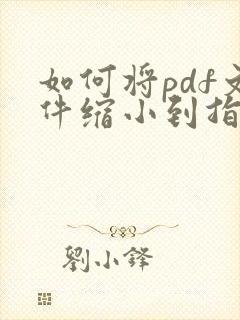 如何将pdf文
件缩小到指
劉小鋒